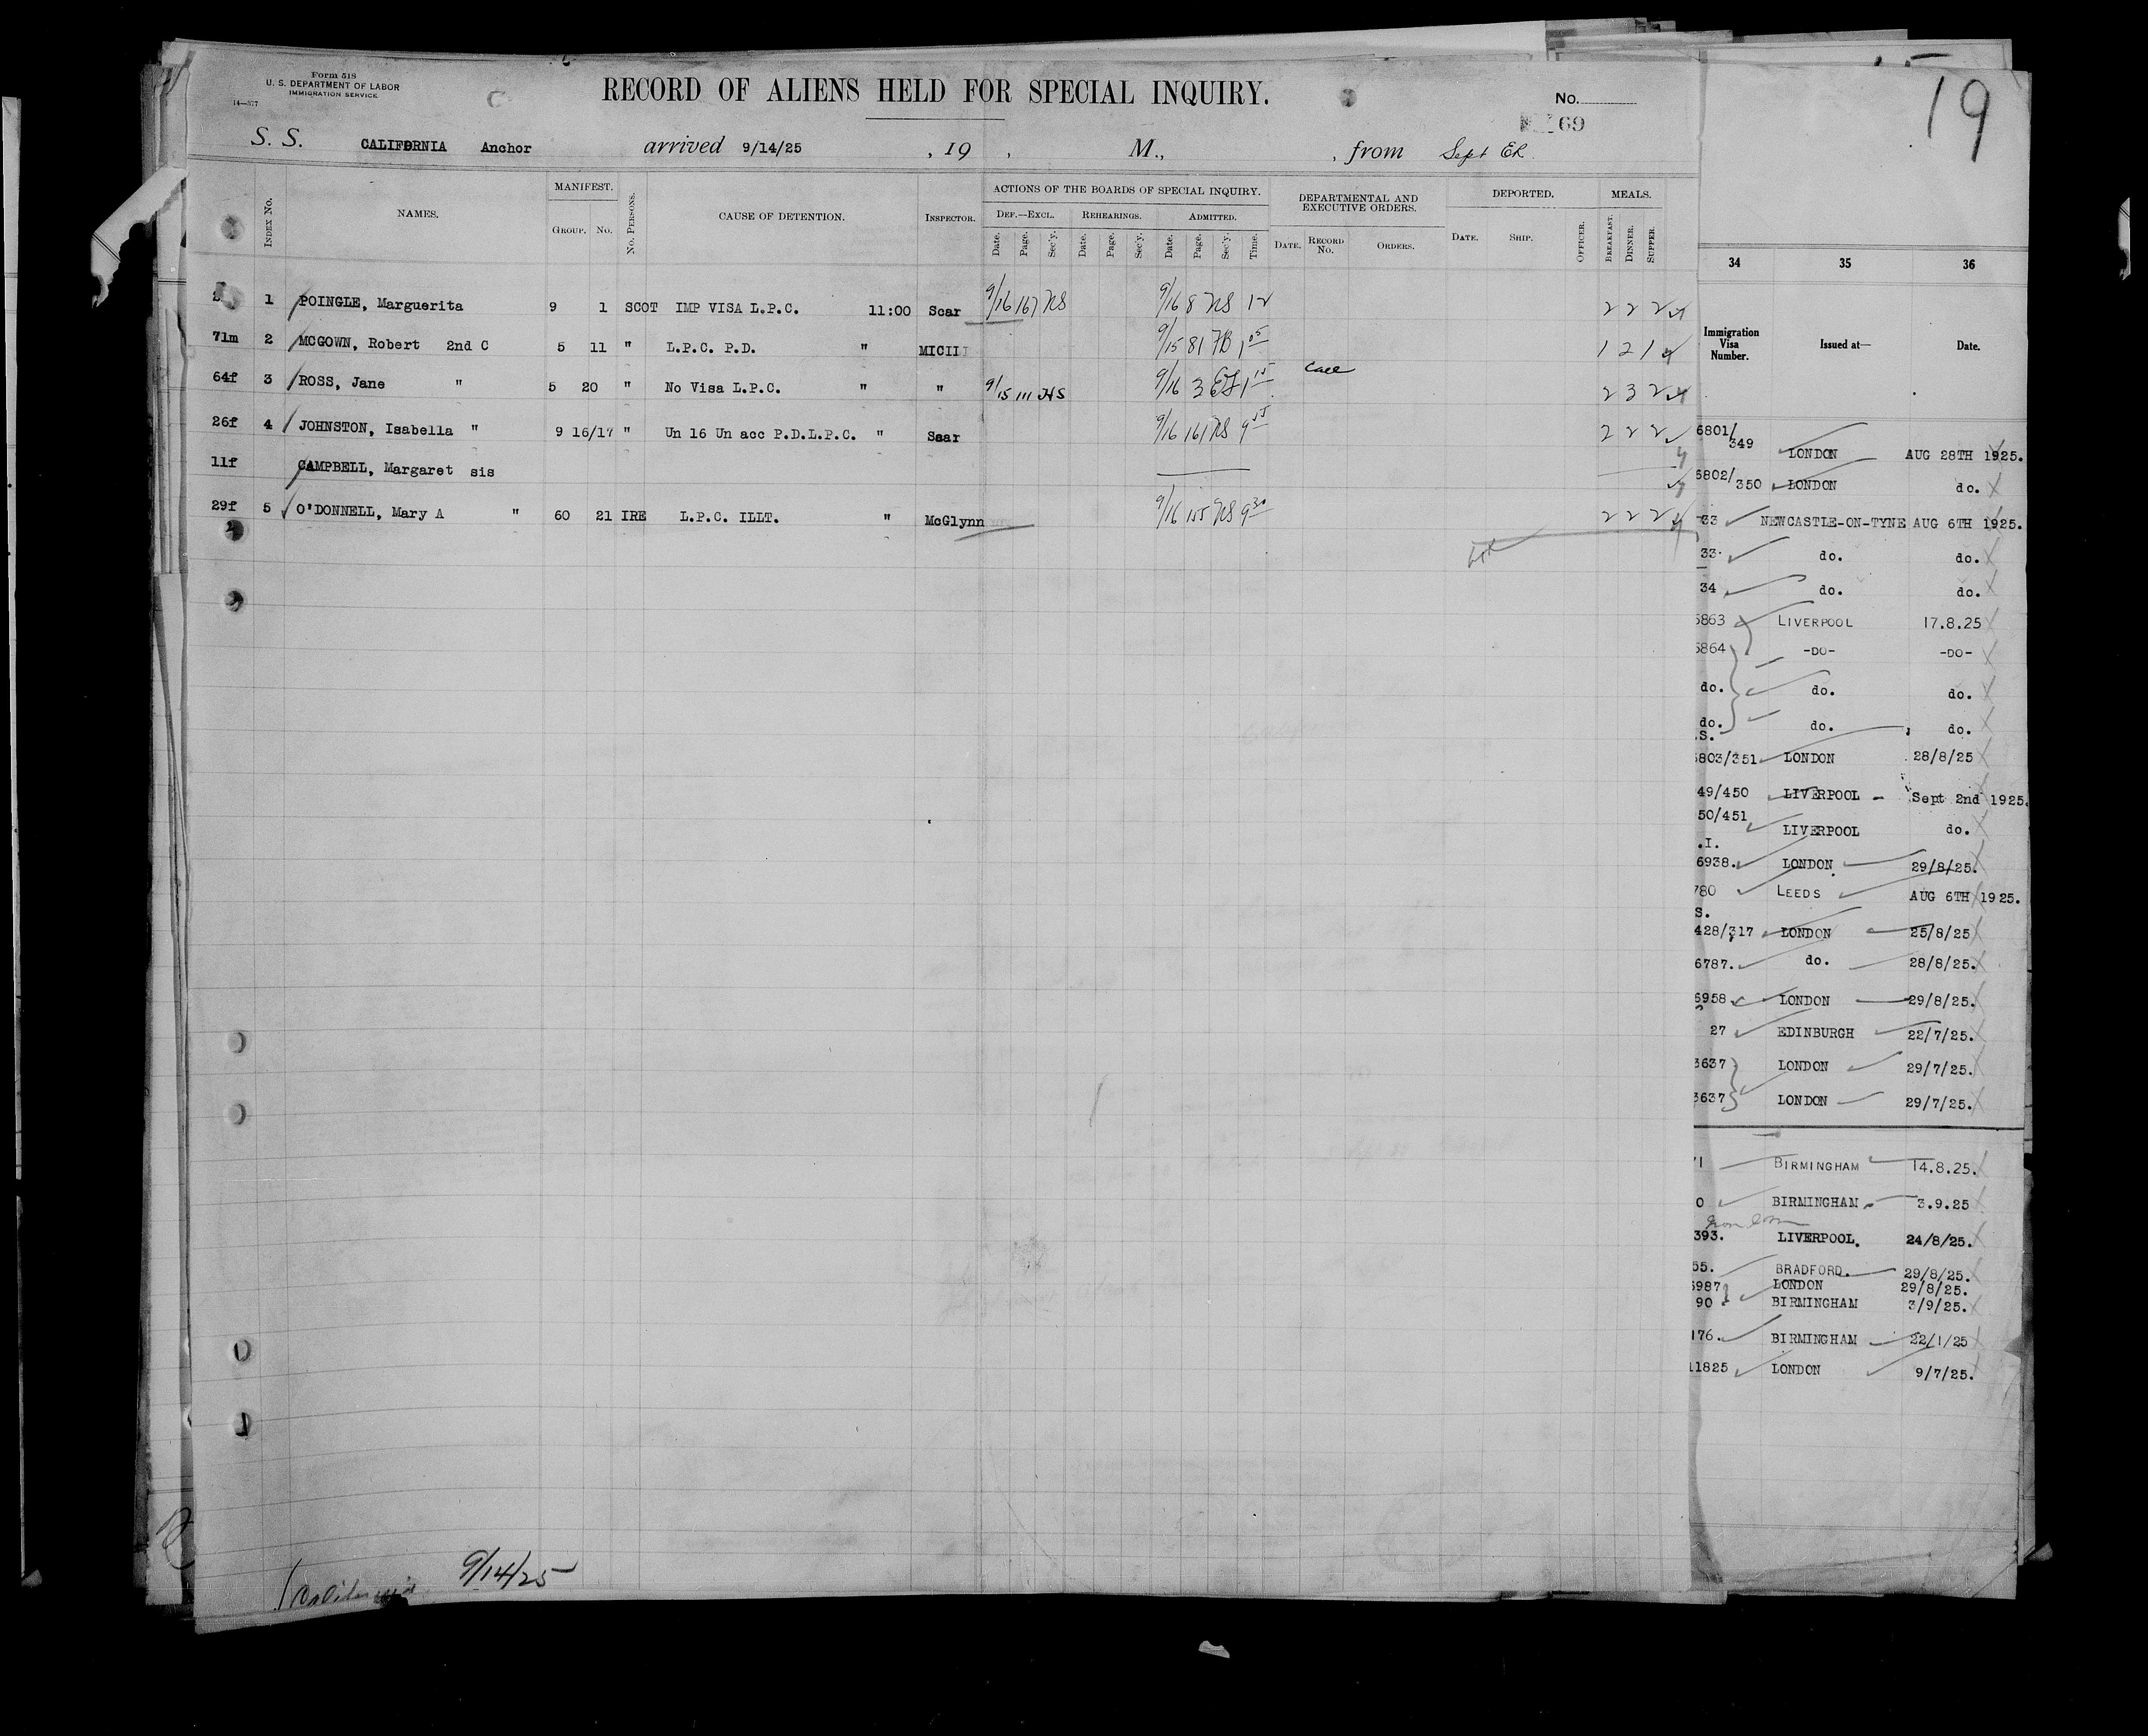 Form 518
U. S. DEPARTMENT OF LABOR
IMMIGRATION SERVICE
14—377
RECORD OF ALIENS HELD FOR SPECIAL INQUIRY.
No.
69
S. S. CALIFORNIA Anchor arrived 9/14/25 , 19 , M., , from Sept
INDEX NO.
NAMES.
MANIFEST.
GROUP. NO.
NO. PERSONS.
CAUSE OF DETENTION.
INSPECTOR.
ACTIONS OF THE BOARDS OF SPECIAL INQUIRY.
DEF.—EXCL. REHEARINGS. ADMITTED.
Date. Page. Sec'y. Date. Page. Sec'y. Date. Page. Sec'y. Time.
DEPARTMENTAL AND
EXECUTIVE ORDERS.
DATE. RECORD No. ORDERS.
DEPORTED.
DATE. SHIP. OFFICER.
MEALS.
BREAKFAST. DINNER. SUPPER.
1 POINGLE, Marguerita 9 1 SCOT IMP VISA L.P.C. 11:00 Scar 9/16 167 NS 9/16 8 NS 12 2 2 2
71m 2 MCGOWN, Robert 2nd C 5 11 " L.P.C. P.D. " 9/15 81 FB 1 05 1 2 1
64f 3 ROSS, Jane " 5 20 " No Visa L.P.C. " " 9/15 111 HS 9/16 3 1 15 2 3 2
26f 4 JOHNSTON, Isabella " 9 16/17 " Un 16 Un acc P.D.L.P.C. " Scar 9/16 161 NS 9 55 2 2 2
11f CAMPBELL, Margaret sis
29f 5 O'DONNELL, Mary A " 60 21 IRE L.P.C. ILLT. " McGlynn 9/16 155 NS 9 30 2 2 2
California 9/14/25
19
34 35 36
Immigration
Visa
Number.
Issued at—
Date.
6801/
349 LONDON AUG 28TH 1925.
6802/
350 LONDON do.
33 NEWCASTLE-ON-TYNE AUG 6TH 1925.
33 do. do.
34 do. do.
5863 LIVERPOOL 17.8.25
5864 -DO- -DO-
do. do. do.
do. do. do.
.S.
6803/351 LONDON 28/8/25
49/450 LIVERPOOL - Sept 2nd 1925.
50/451
LIVERPOOL do.
.I.
6938. LONDON 29/8/25.
780 LEEDS AUG 6TH 1925.
S.
428/317 LONDON 25/8/25
6787. do. 28/8/25.
6958 LONDON 29/8/25.
27 EDINBURGH 22/7/25.
3637 LONDON 29/7/25.
3637 LONDON 29/7/25.
71 BIRMINGHAM 14.8.25.
0 BIRMINGHAM. 3.9.25
393. LIVERPOOL. 24/8/25.
55. BRADFORD. 29/8/25.
6987 LONDON 29/8/25.
90 BIRMINGHAM 3/9/25.
176. BIRMINGHAM 22/1/25
11825 LONDON 9/7/25.